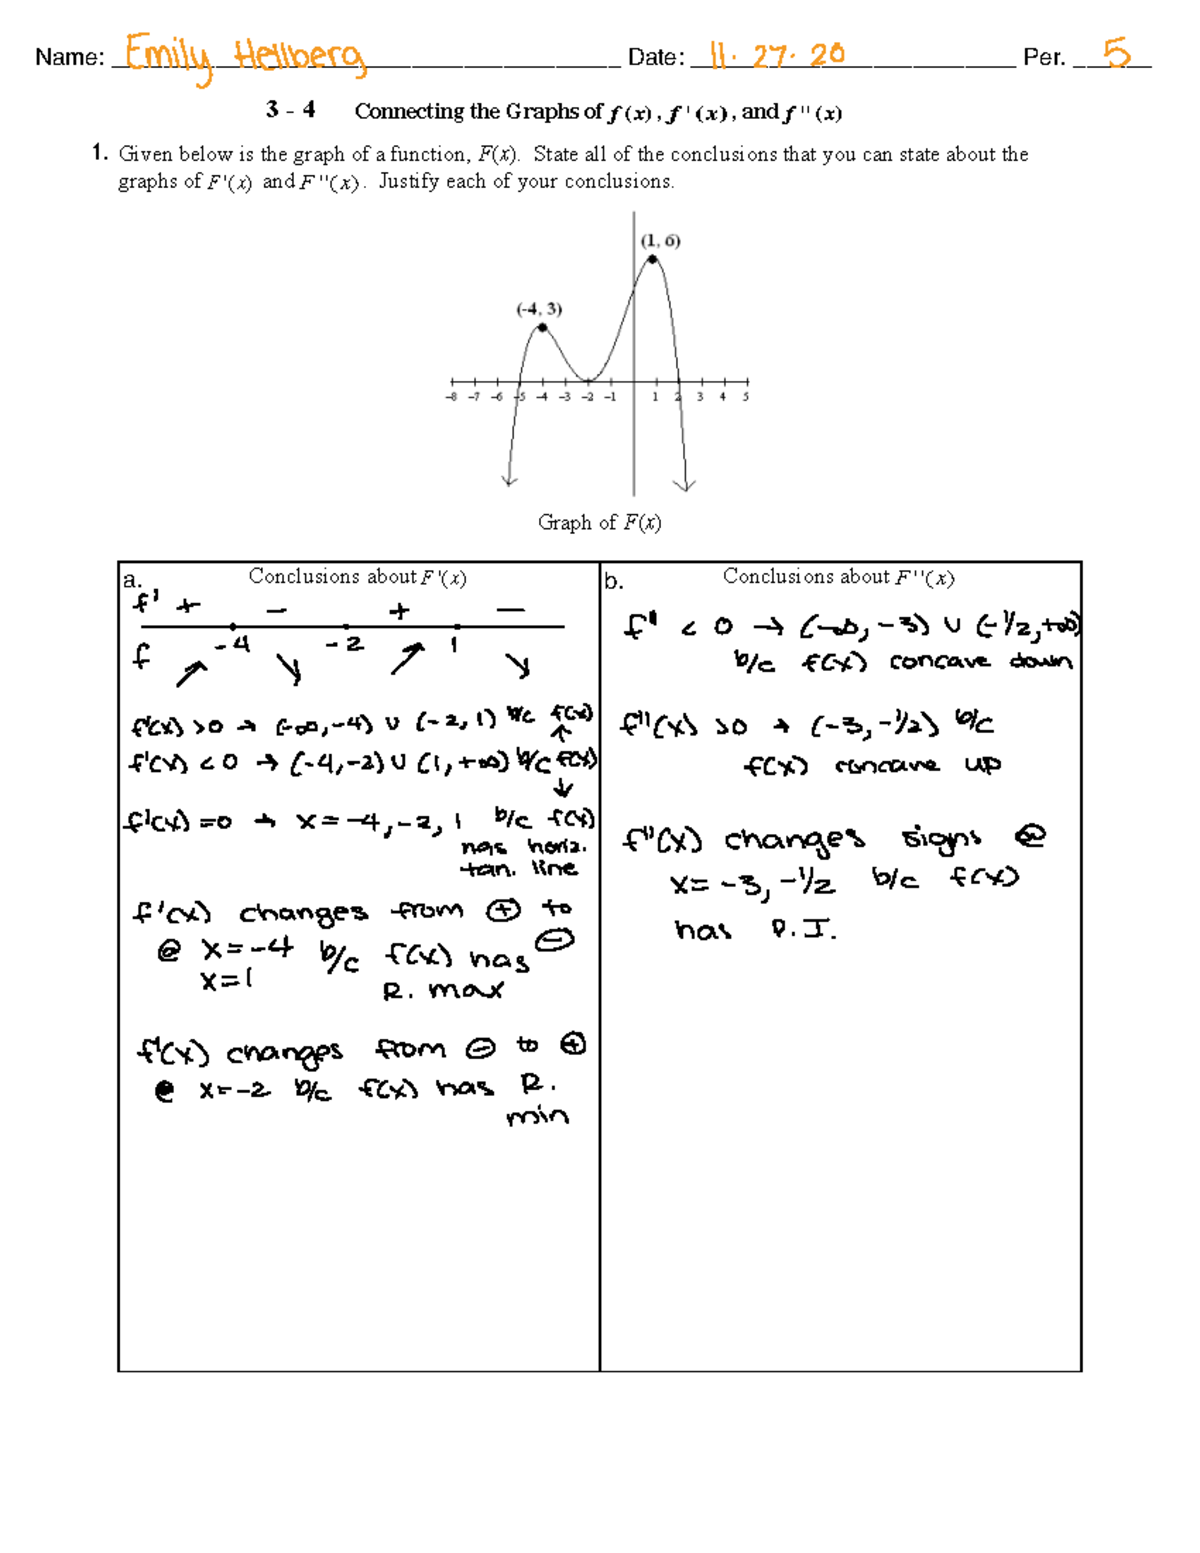 Name: Emily Hellberg Date: 11.27.20 Per. 5
3 - 4 Connecting the Graphs of f (x), f '(x), and f ''(x)
1. Given below is the graph of a function, F(x). State all of the conclusions that you can state about the
graphs of F'(x) and F''(x). Justify each of your conclusions.
(1, 6)
(-4, 3)
-8 -7 -6 -5 -4 -3 -2 -1 1 2 3 4 5
Graph of F(x)
a. Conclusions about F'(x)
f' + - + -
-4 -2 1
f
f'(x) >0 → (-∞,-4) ∪ (-2, 1) b/c f(x) ↑
f'(x) < 0 → (-4,-2) ∪ (1, +∞) b/c f(x) ↓
f'(x) =0 → x=-4,-2, 1 b/c f(x)
has horiz.
tan. line
f'(x) changes from ⊕ to ⊖
@ x=-4 b/c f(x) has
x=1 R. max
f'(x) changes from ⊖ to ⊕
@ x=-2 b/c f(x) has R.
min
b. Conclusions about F''(x)
f'' < 0 → (-∞, -3) ∪ (-1/2,+∞)
b/c f(x) concave down
f''(x) >0 → (-3, -1/2) b/c
f(x) concave up
f''(x) changes signs @
x= -3, -1/2 b/c f(x)
has P.I.